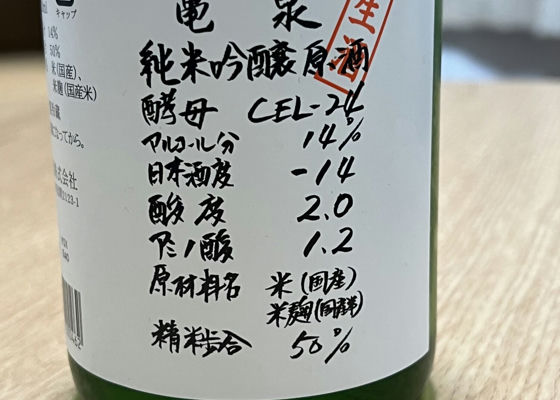 亀泉
生酒
純米吟醸原酒
酵母 CEL-24
アルコール分 14%
日本酒度 -14
酸度 2.0
アミノ酸 1.2
原材料名 米(国産)
米麹(国産)
精米歩合 50%
キャップ
14%
50%
米(国産)、
米麹(国産米)
なってから。
式会社
2123-1